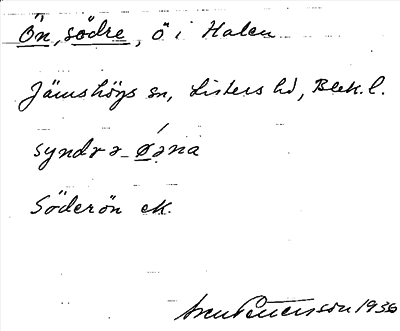 Ön, södre, ö i Halen
Jämshögs sn, Listers hd, Blek. l.
syndrə-øəna
Söderön ek.
Pettersson 1936